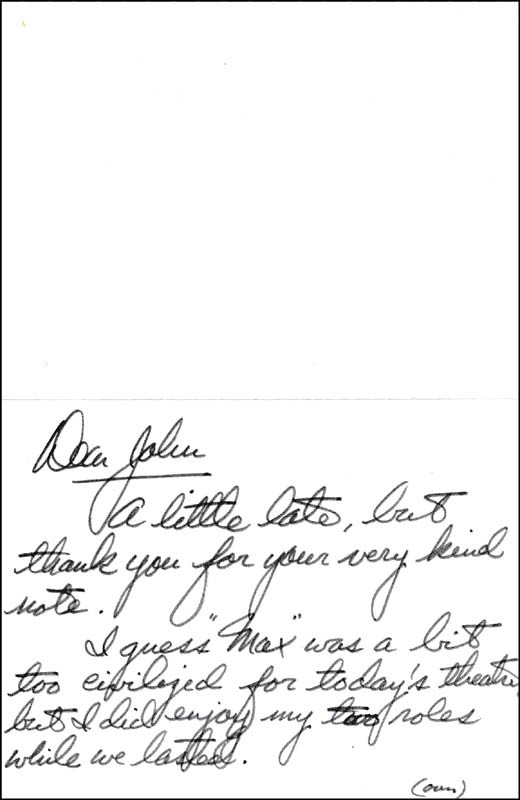 Dear John
A little late, but
thank you for your very kind
note.
I guess "Max" was a bit
too civilized for today's theatre,
but I did enjoy my two roles
while we lasted.
(over)